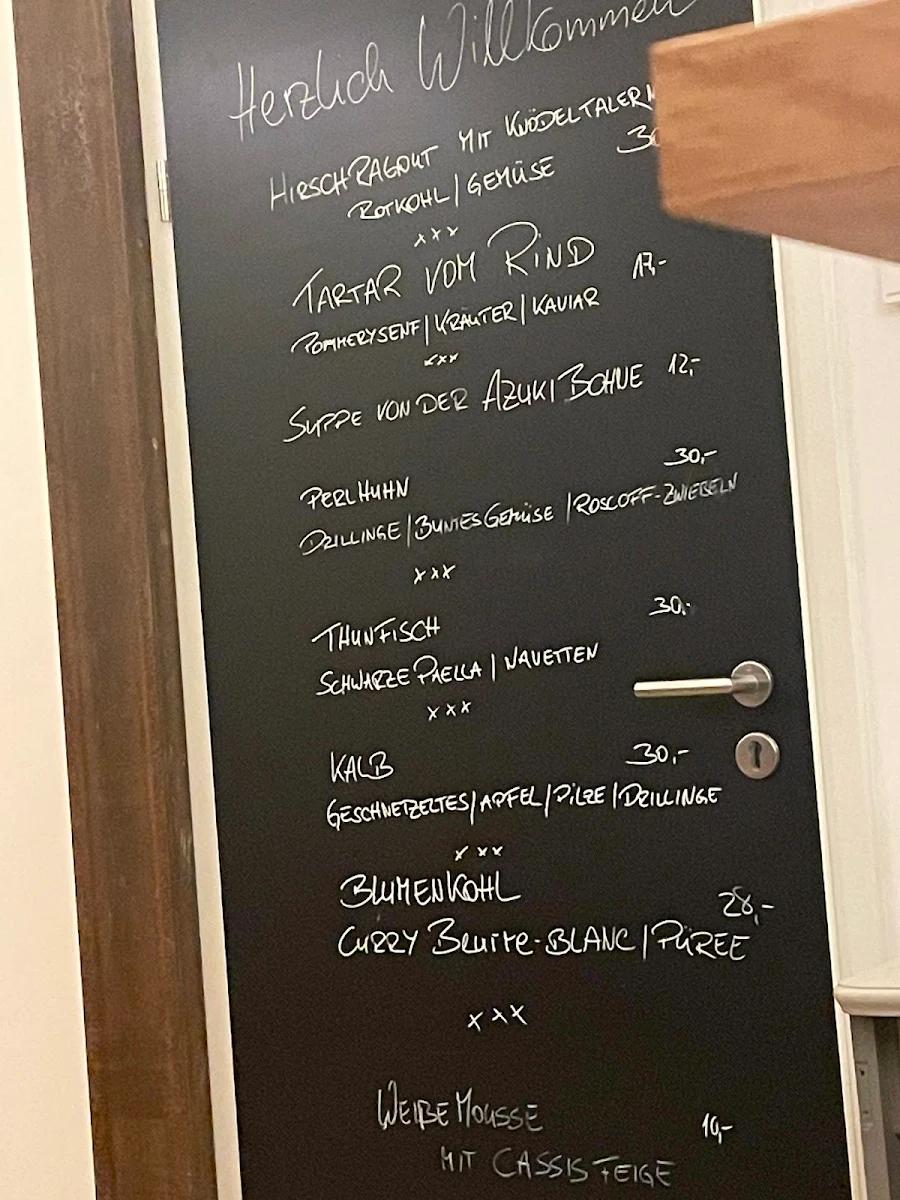 Herzlich Willkommen
HIRSCHRAGOUT MIT KNÖDELTALERN
ROTKOHL/GEMÜSE
xxx
TARTAR VOM RIND 17,-
POMMERYSENF/KRÄUTER/KAVIAR
xxx
SUPPE VON DER AZUKI BOHNE 12,-
PERLHUHN 30,-
DRILLINGE/BUNTES GEMÜSE/ROSCOFF-ZWIEBELN
xxx
THUNFISCH 30,-
SCHWARZE PAELLA/NAVETTEN
xxx
KALB 30,-
GESCHNETZELTES/APFEL/PILZE/DRILLINGE
xxx
BLUMENKOHL 28,-
CURRY BEURRE-BLANC/PÜREE
xxx
WEIßE MOUSSE
MIT CASSIS FEIGE 10,-